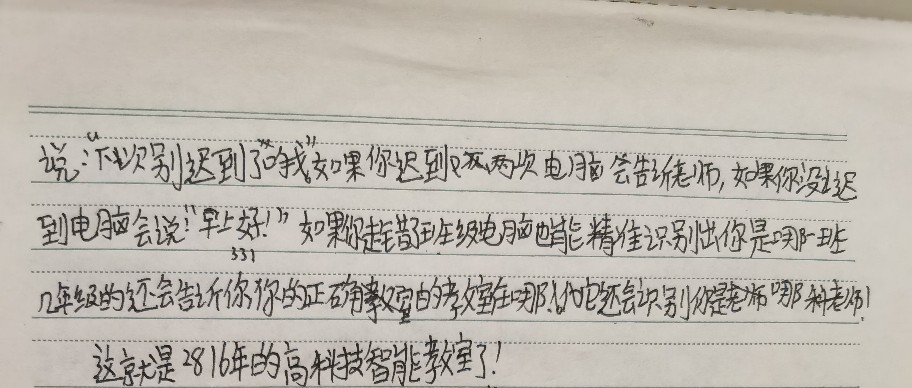 说:“下次别迟到了哦”如果你迟到两次电脑会告诉老师,如果你没迟
到电脑会说“早上好!”如果你走错班年级电脑也能精准识别出你是哪一班
331
几年级的还会告诉你你的正确教室的教室在哪!他还会识别你是老师哪科老师!
这就是2816年的高科技智能教室了!